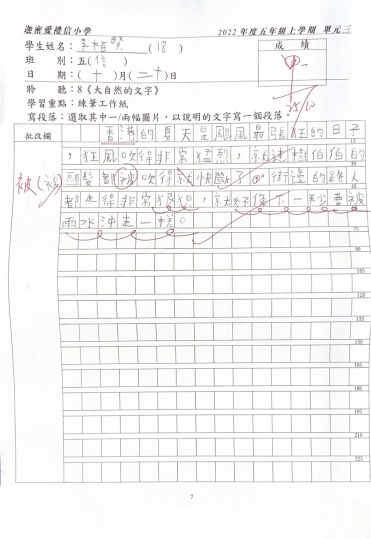 迦密愛禮信小學 2022年度五年級上學期 單元三
學生姓名： (18) 成績
班 別：五(信) 甲
日 期：(十)月(二十)日 25/10
聆 聽：8《大自然的文字》
學習重點：練筆工作紙
寫段落：選取其中一/兩幅圖片，以說明的文字寫一個段落。
批改欄 香港的夏天是颱風最張狂的日子
15
，狂風吹得非常猛烈，就連樹伯伯的
30
被(被) 頭髮都被吹得 快斷了。街邊的路人
45
都走得非常狼狽，就好像下一秒要被
60
雨水沖走一樣。
75
90
105
120
135
150
165
180
195
210
225
7